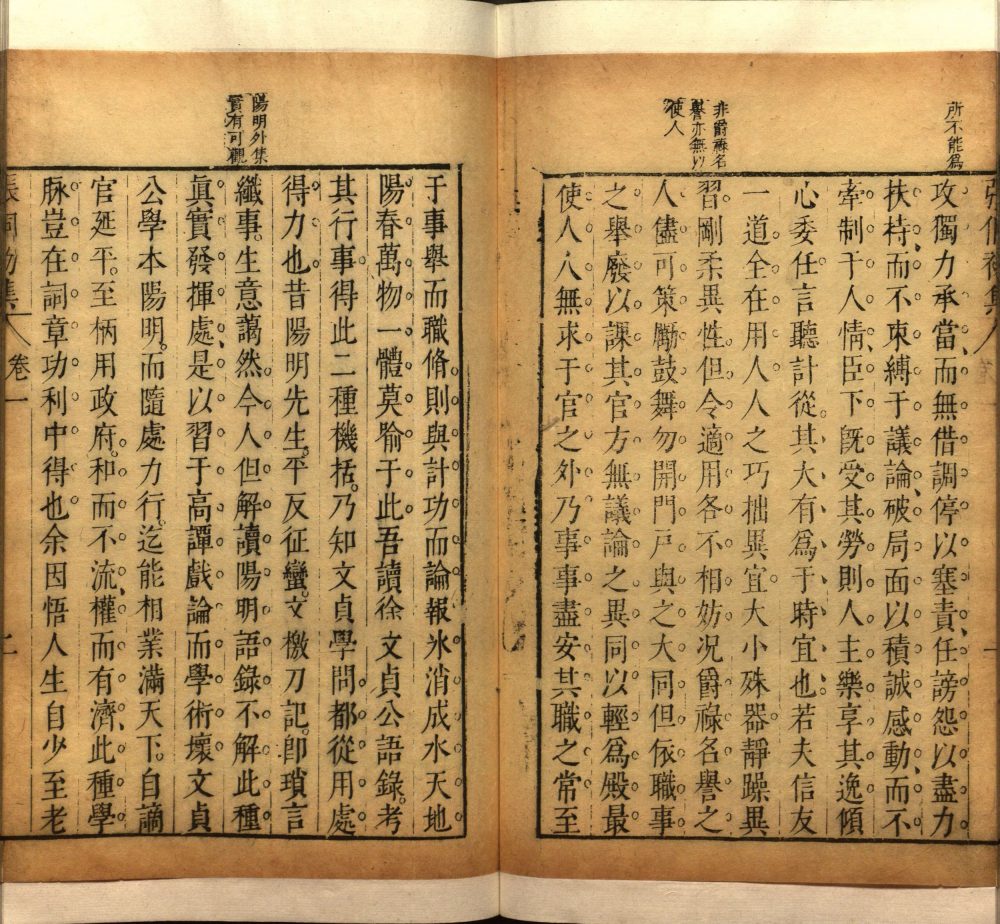 所不能爲
攻獨力承當而無借調停以塞責任謗怨以盡力
扶持而不束縛于議論破局面以積誠感動而不
牽制于人情臣下旣受其勞則人主樂享其逸傾
心委任言聽計從其大有爲于時宜也若夫信友
一道全在用人人之巧拙異宜大小殊器靜躁異
非爵祿名
譽亦無以
使人
習剛柔異性但令適用各不相妨况爵祿名譽之
人儘可策勵鼓舞勿開門戶與之大同但依職事
之舉廢以課其官方無議論之異同以輕爲殿最
使人人無求于官之外乃事事盡安其職之常至
于事舉而職脩則與計功而論報氷消成水天地
陽春萬物一體莫喻于此吾讀徐文貞公語錄考
其行事得此二種機括乃知文貞學問都從用處
得力也昔陽明先生平反征蠻文檄刀記卽瑣言
陽明外集
實有可觀
纖事生意藹然今人但解讀陽明語錄不解此種
眞實發揮處是以習于高譚戲論而學術壞文貞
公學本陽明而隨處力行迄能相業滿天下自謫
官延平至柄用政府和而不流權而有濟此種學
脉豈在詞章功利中得也余因悟人生自少至老
卷一